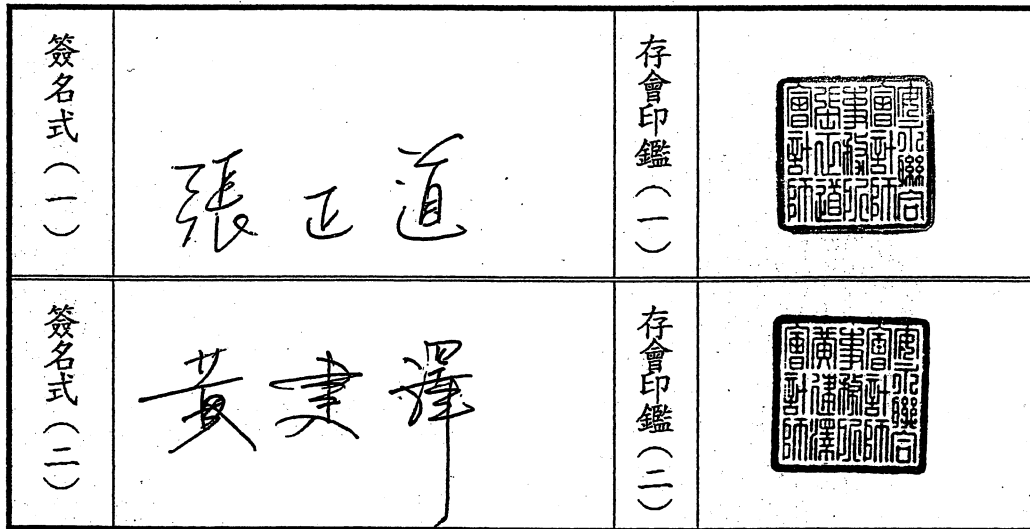 簽名式（一）
張正道
存會印鑑（一）
安永聯合
會計師
事務所
張正道
會計師
簽名式（二）
黃建澤
存會印鑑（二）
安永聯合
會計師
事務所
黃建澤
會計師